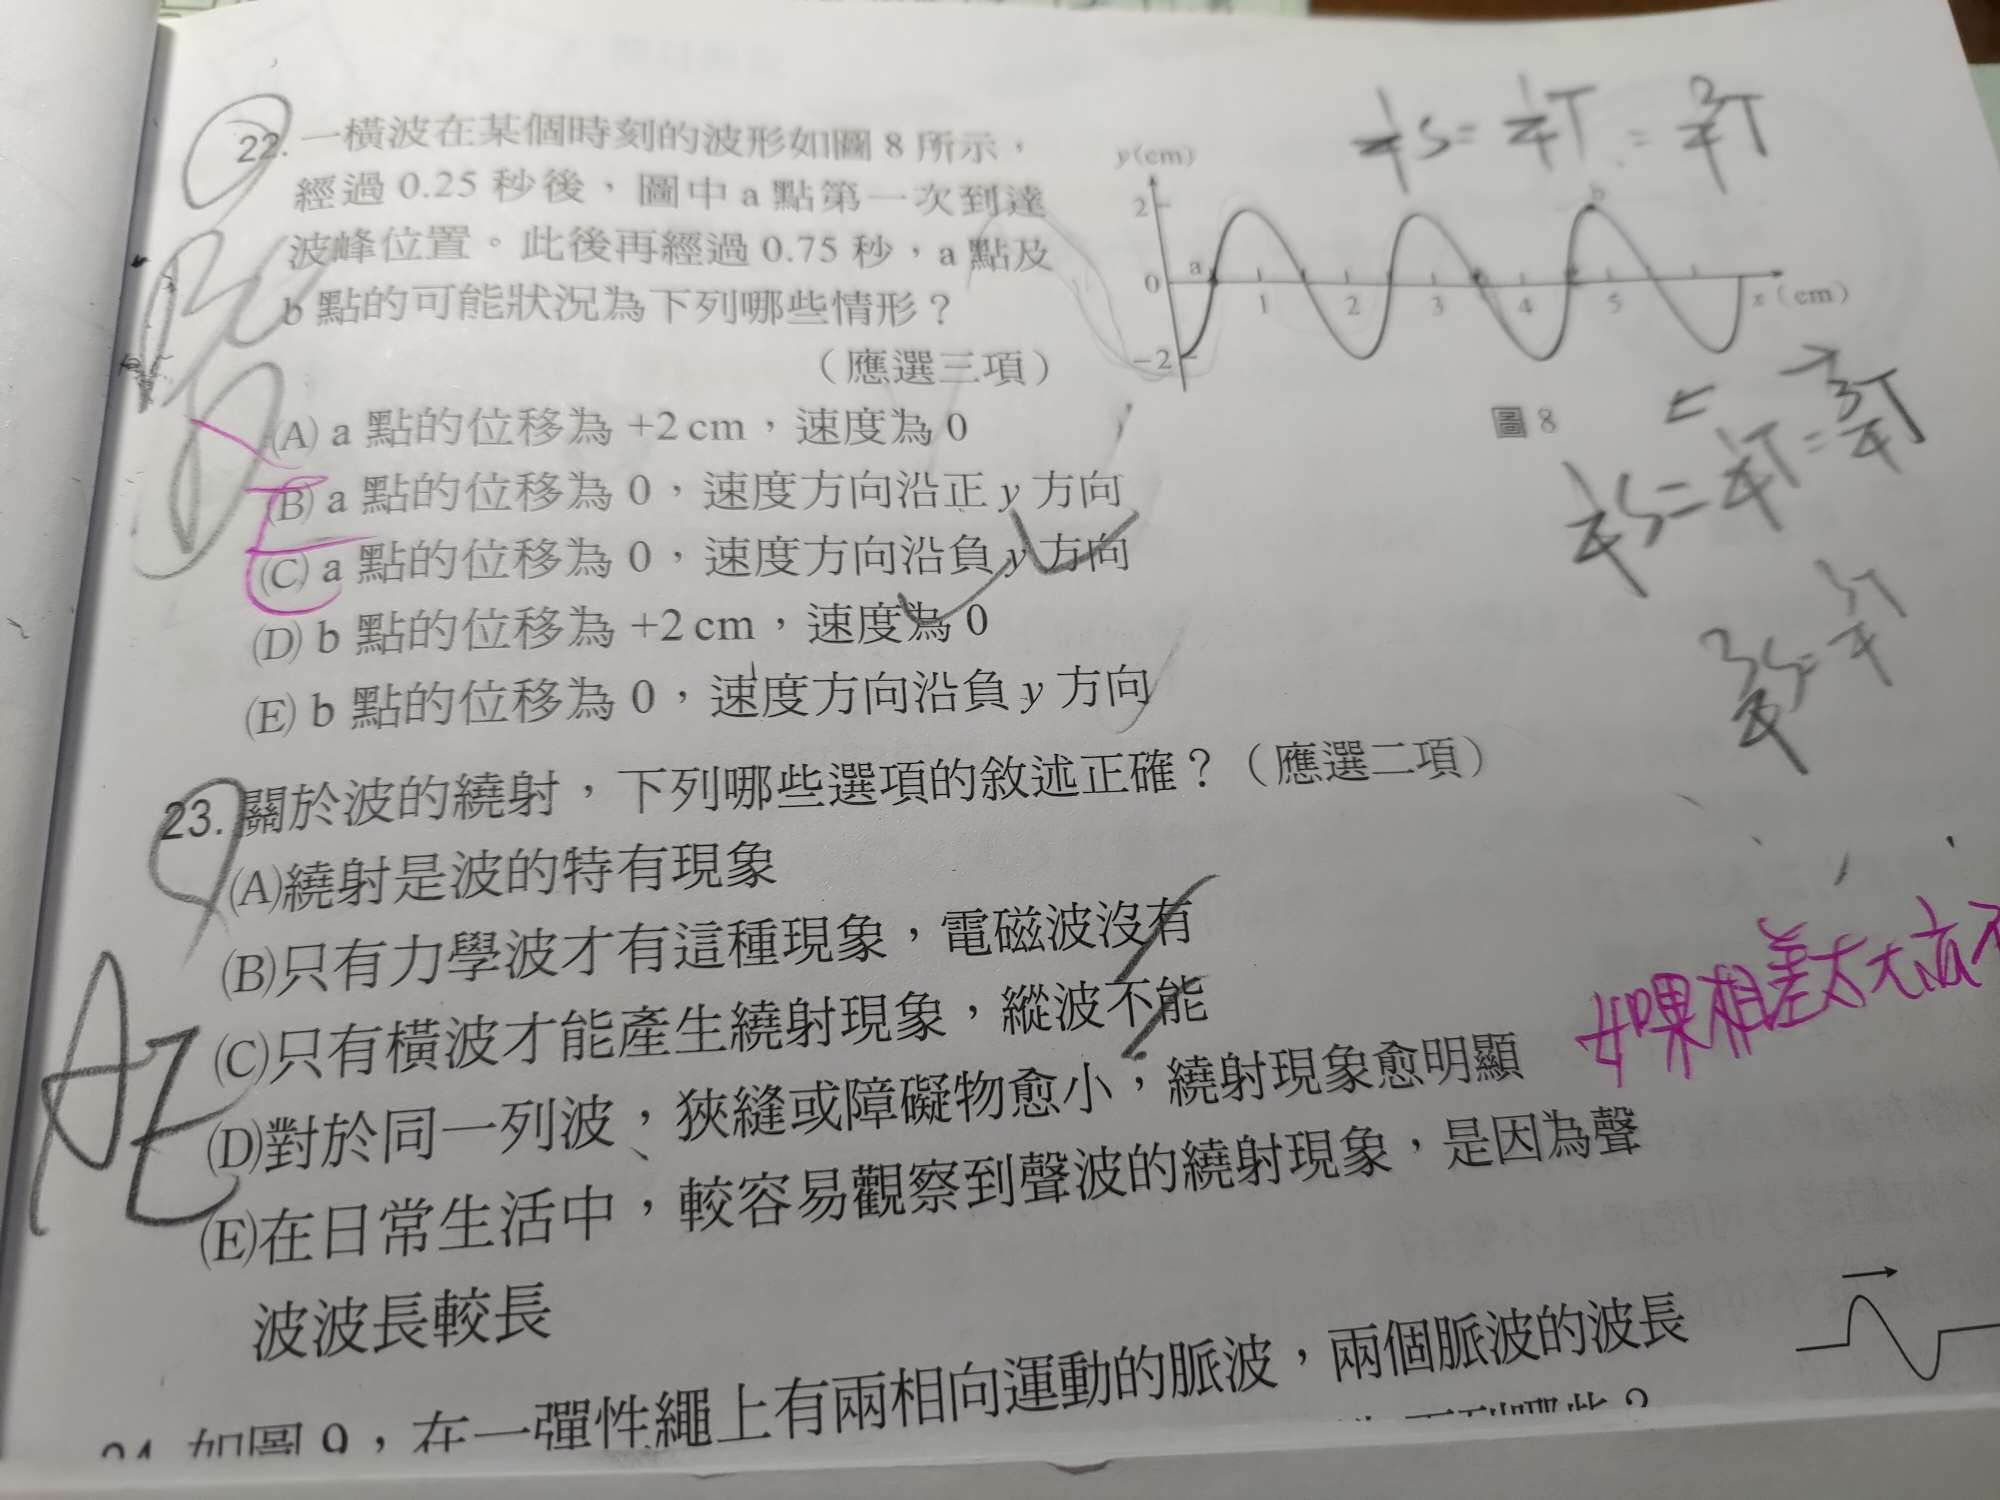 22. 一橫波在某個時刻的波形如圖 8 所示，
經過 0.25 秒後，圖中 a 點第一次到達
波峰位置。此後再經過 0.75 秒，a 點及
b 點的可能狀況為下列哪些情形？
（應選三項）
(A) a 點的位移為 +2 cm，速度為 0
(B) a 點的位移為 0，速度方向沿正 y 方向
(C) a 點的位移為 0，速度方向沿負 y 方向
(D) b 點的位移為 +2 cm，速度為 0
(E) b 點的位移為 0，速度方向沿負 y 方向
y(cm)
2
0
-2
a
b
1 2 3 4 5
x（cm）
圖 8
1/4 S = 1/4 T = 3/4 T
1/4 S = 1/4 T = 3/4 T
BCD
23. 關於波的繞射，下列哪些選項的敘述正確？（應選二項）
(A)繞射是波的特有現象
(B)只有力學波才有這種現象，電磁波沒有
(C)只有橫波才能產生繞射現象，縱波不能
(D)對於同一列波，狹縫或障礙物愈小，繞射現象愈明顯
(E)在日常生活中，較容易觀察到聲波的繞射現象，是因為聲
波波長較長
AE
如果相差太大
24. 如圖 9，在一彈性繩上有兩相向運動的脈波，兩個脈波的波長